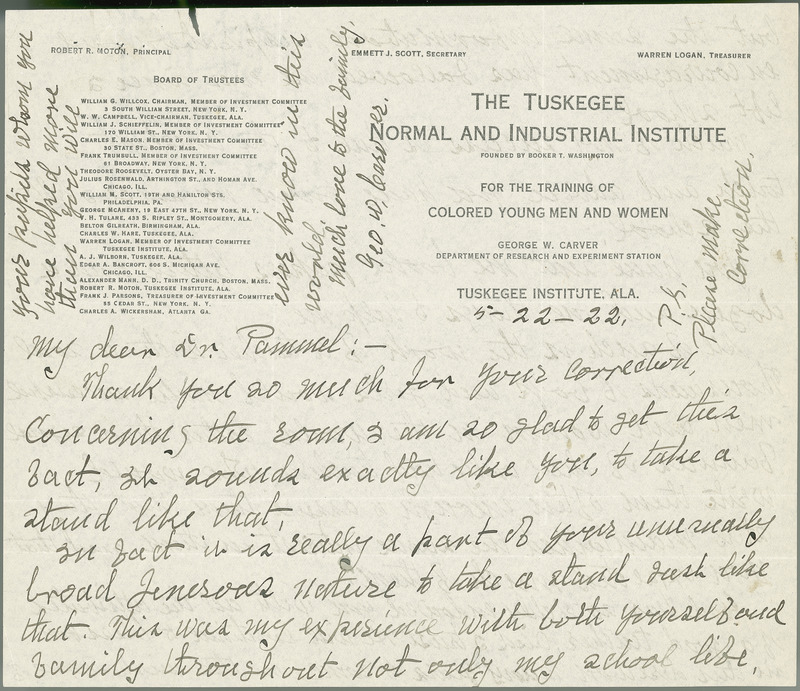 ROBERT R. MOTON, PRINCIPAL
EMMETT J. SCOTT, SECRETARY
WARREN LOGAN, TREASURER
BOARD OF TRUSTEES
WILLIAM G. WILLCOX, CHAIRMAN, MEMBER OF INVESTMENT COMMITTEE
3 SOUTH WILLIAM STREET, NEW YORK, N. Y.
W. W. CAMPBELL, VICE-CHAIRMAN, TUSKEGEE, ALA.
WILLIAM J. SCHIEFFELIN, MEMBER OF INVESTMENT COMMITTEE
170 WILLIAM ST., NEW YORK, N. Y.
CHARLES E. MASON, MEMBER OF INVESTMENT COMMITTEE
30 STATE ST., BOSTON, MASS.
FRANK TRUMBULL, MEMBER OF INVESTMENT COMMITTEE
61 BROADWAY, NEW YORK, N. Y.
THEODORE ROOSEVELT, OYSTER BAY, N. Y.
JULIUS ROSENWALD, ARTHINGTON ST., AND HOMAN AVE.
CHICAGO, ILL.
WILLIAM M. SCOTT, 19TH AND HAMILTON STS.
PHILADELPHIA, PA.
GEORGE MCANENY, 19 EAST 47TH ST., NEW YORK, N. Y.
V. H. TULANE, 433 S. RIPLEY ST., MONTGOMERY, ALA.
BELTON GILREATH, BIRMINGHAM, ALA.
CHARLES W. HARE, TUSKEGEE, ALA.
WARREN LOGAN, MEMBER OF INVESTMENT COMMITTEE
TUSKEGEE INSTITUTE, ALA.
A. J. WILBORN, TUSKEGEE, ALA.
EDGAR A. BANCROFT, 606 S. MICHIGAN AVE.
CHICAGO, ILL.
ALEXANDER MANN, D. D., TRINITY CHURCH, BOSTON, MASS.
ROBERT R. MOTON, TUSKEGEE INSTITUTE, ALA.
FRANK J. PARSONS, TREASURER OF INVESTMENT COMMITTEE
55 CEDAR ST., NEW YORK, N. Y.
CHARLES A. WICKERSHAM, ATLANTA GA.
THE TUSKEGEE
NORMAL AND INDUSTRIAL INSTITUTE
FOUNDED BY BOOKER T. WASHINGTON
FOR THE TRAINING OF
COLORED YOUNG MEN AND WOMEN
GEORGE W. CARVER
DEPARTMENT OF RESEARCH AND EXPERIMENT STATION
TUSKEGEE INSTITUTE, ALA.
5-22-22.
My dear Dr. Pammel:—
Thank you so much for your correction,
Concerning the room, I am so glad to get this
fact, It sounds exactly like you, to take a
stand like that,
In fact it is really a part of your unusually
broad generous nature to take a stand such like
that. This was my experience with both yourself and
family throughout not only my school life,
your pupils whom you
have helped more
than you will
ever know in this
world.
much love to the family.
Geo. W. Carver.
P.S.
Please make
correction.